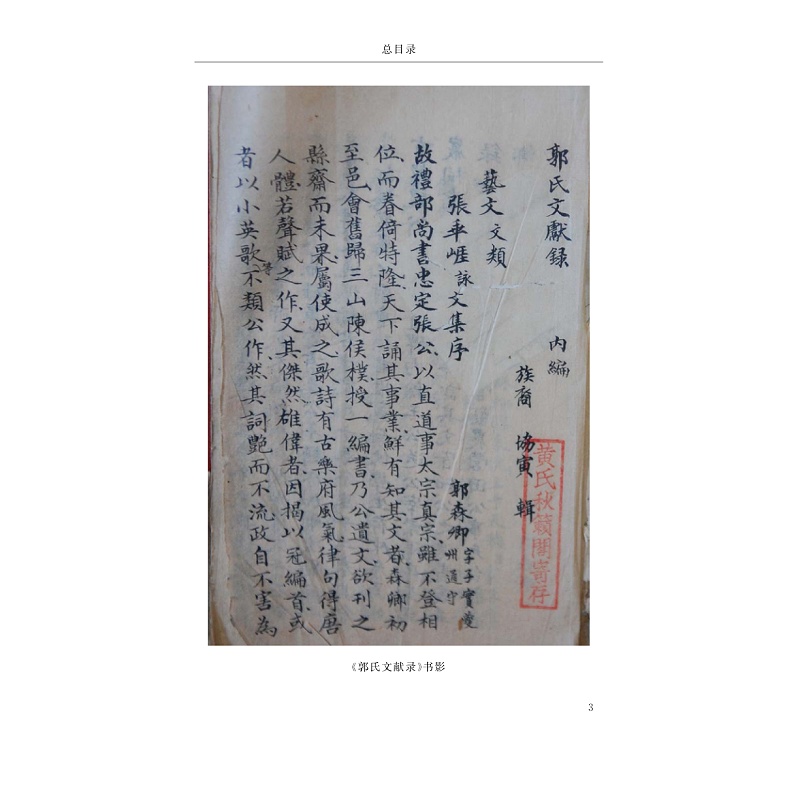 总目录
郭氏文獻録 内編
族裔 協寅 輯
藝文 文類
張乖崖詠文集序
郭森卿 字子實愛州通守
故禮部尚書忠定張公以直道事太宗真宗雖不登相
位而眷倚特隆天下誦其事業鮮有知其文者森卿初
至邑會舊歸三山陳侯樸授一編書乃公遺文欲刊之
縣齋而未果屬使成之歌詩有古樂府風氣律句得唐
人體若聲賦之作又其傑然雄偉者因揭以冠編首或
者以小英歌等不類公作然其詞艷而不流政自不害為
黄氏秋籟閣寄存
《郭氏文献录》书影
3